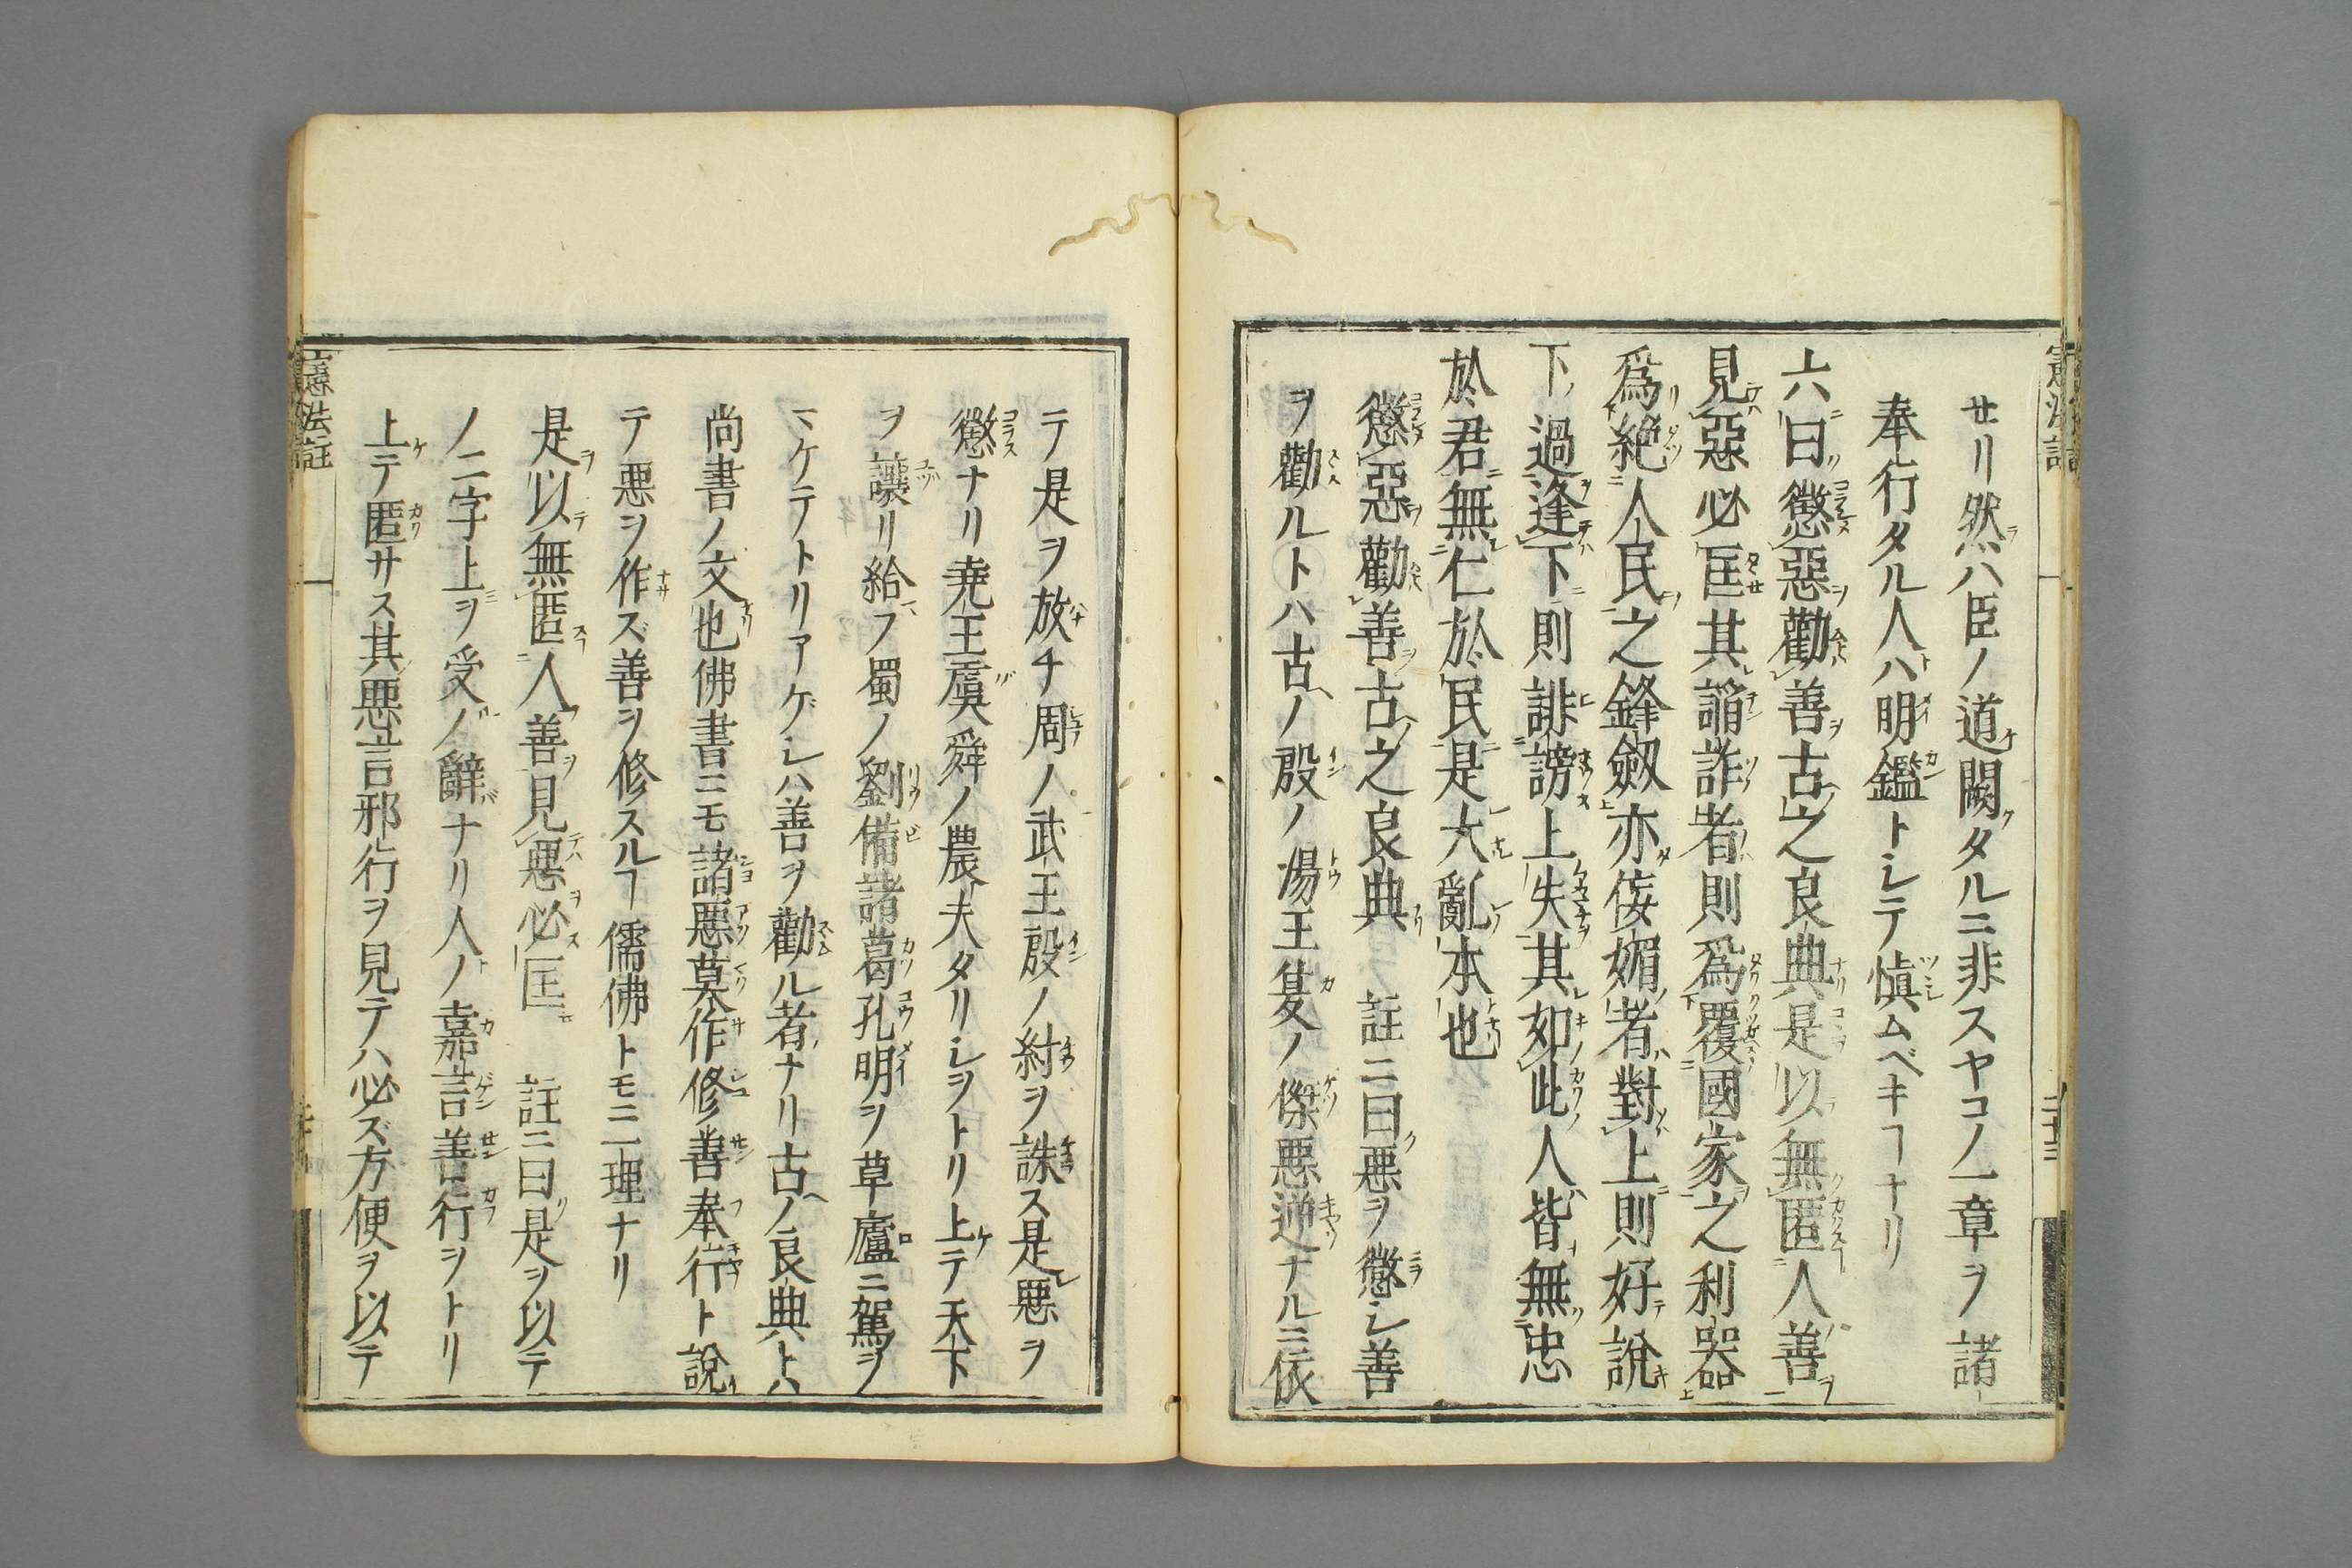 セリ然ハ臣ノ道闕タルニ非スヤコノ一章ヲ諸
奉行タル人ハ明鑑トシテ愼ムベキヿナリ
六曰懲惡勸善古之良典是以無匿人善
見惡必匡其謟詐者則爲覆國家之利器
爲絶人民之鋒劔亦侫媚者對上則好說
下過逢下則誹謗上失其如此人皆無忠
於君無仁於民是大亂本也
懲惡勸善古之良典　註ニ曰悪ヲ懲シ善
ヲ勸ルトハ古ノ殷ノ湯王夏ノ傑悪逆ナルニ依
テ是ヲ放チ周ノ武王殷ノ紂ヲ誅ス是惡ヲ
懲ナリ堯王虞舜ノ農夫タリシヲトリ上テ天下
ヲ讓リ給フ蜀ノ劉備諸葛孔明ヲ草廬ニ駕ヲ
マケテトリアゲシハ善ヲ勸ル者ナリ古ノ良典トハ
尚書ノ文也佛書ニモ諸惡莫作修善奉行ト說
テ悪ヲ作ズ善ヲ修スルヿ儒佛トモニ一理ナリ
是以無匿人善見悪必匡　註ニ曰是ヲ以テ
ノ二字上ヲ受ノ辭ナリ人ノ嘉言善行ヲトリ
上テ匿サス其悪言邪行ヲ見テハ必ズ方便ヲ以テ
憲法註